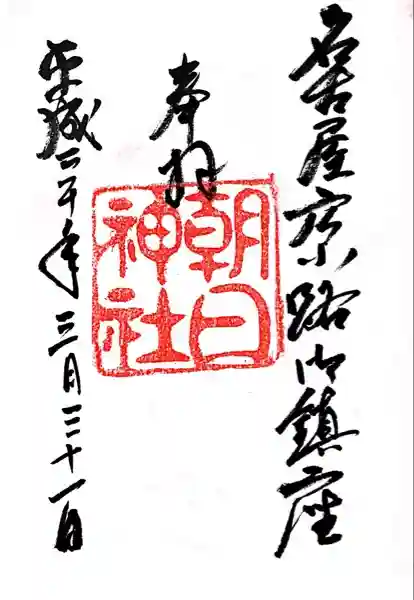 名古屋廣小路御鎮座
奉拝
朝日
神社
平成二十年三月三十一日